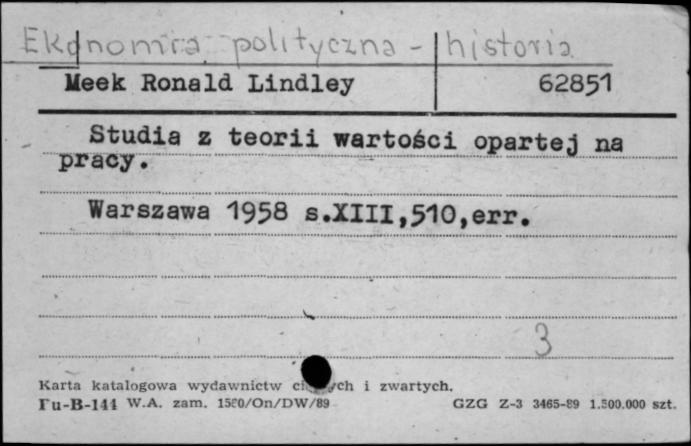 Ekonomia polityczna - historia
Meek Ronald Lindley 62851
Studia z teorii wartości opartej na
pracy.
Warszawa 1958 s.XIII,510,err.
3
Karta katalogowa wydawnictw i zwartych.
Fu-B-144 W.A. zam. 1580/On/DW/89 GZG Z-3 3465-89 1.500.000 szt.